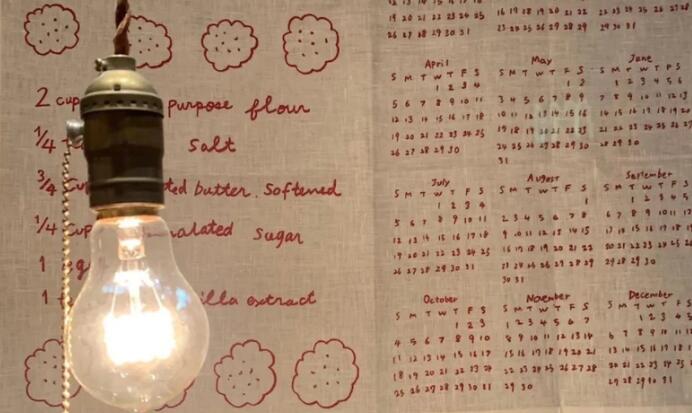 2 cup purpose flour
1/4 salt
3/4 cup ted butter, softened
1/4 cup nalated sugar
1
1 illa extract
19 20 21 22 23 24 25
26 27 28 29 30 31
16 17 18 19 20 21 22
23 24 25 26 27 28 29
22 23 24 25 26 27 28
29 30 31
April
S M T W T F S
1 2 3 4
5 6 7 8 9 10 11
12 13 14 15 16 17 18
19 20 21 22 23 24 25
26 27 28 29 30
May
S M T W T F S
1 2
3 4 5 6 7 8 9
10 11 12 13 14 15 16
17 18 19 20 21 22 23
24 25 26 27 28 29 30
31
June
S M T W T F S
1 2 3 4 5 6
7 8 9 10 11 12 13
14 15 16 17 18 19 20
21 22 23 24 25 26 27
28 29 30
July
S M T W T F S
1 2 3 4
5 6 7 8 9 10 11
12 13 14 15 16 17 18
19 20 21 22 23 24 25
26 27 28 29 30 31
August
S M T W T F S
1
2 3 4 5 6 7 8
9 10 11 12 13 14 15
16 17 18 19 20 21 22
23 24 25 26 27 28 29
30 31
September
S M T W T F S
1 2 3 4 5
6 7 8 9 10 11 12
13 14 15 16 17 18 19
20 21 22 23 24 25 26
27 28 29 30
October
S M T W T F S
1 2 3
4 5 6 7 8 9 10
11 12 13 14 15 16 17
18 19 20 21 22 23 24
25 26 27 28 29 30 31
November
S M T W T F S
1 2 3 4 5 6 7
8 9 10 11 12 13 14
15 16 17 18 19 20 21
22 23 24 25 26 27 28
29 30
December
S M T W T F S
1 2 3 4 5
6 7 8 9 10 11 12
13 14 15 16 17 18 19
20 21 22 23 24 25 26
27 28 29 30 31